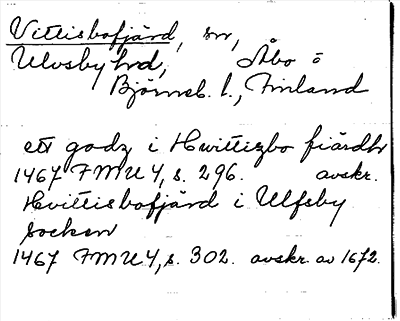 Vittisbofjärd, sn,
Ulvsby hd, Åbo o
Björneb. l., Finland
ett godz i Hwittizbo fiärdh
1467 FMU 4, s. 296. avskr.
Hvittisbofjärd i Ulfsby
socken
1467 FMU 4, s. 302. avskr. av 1672.